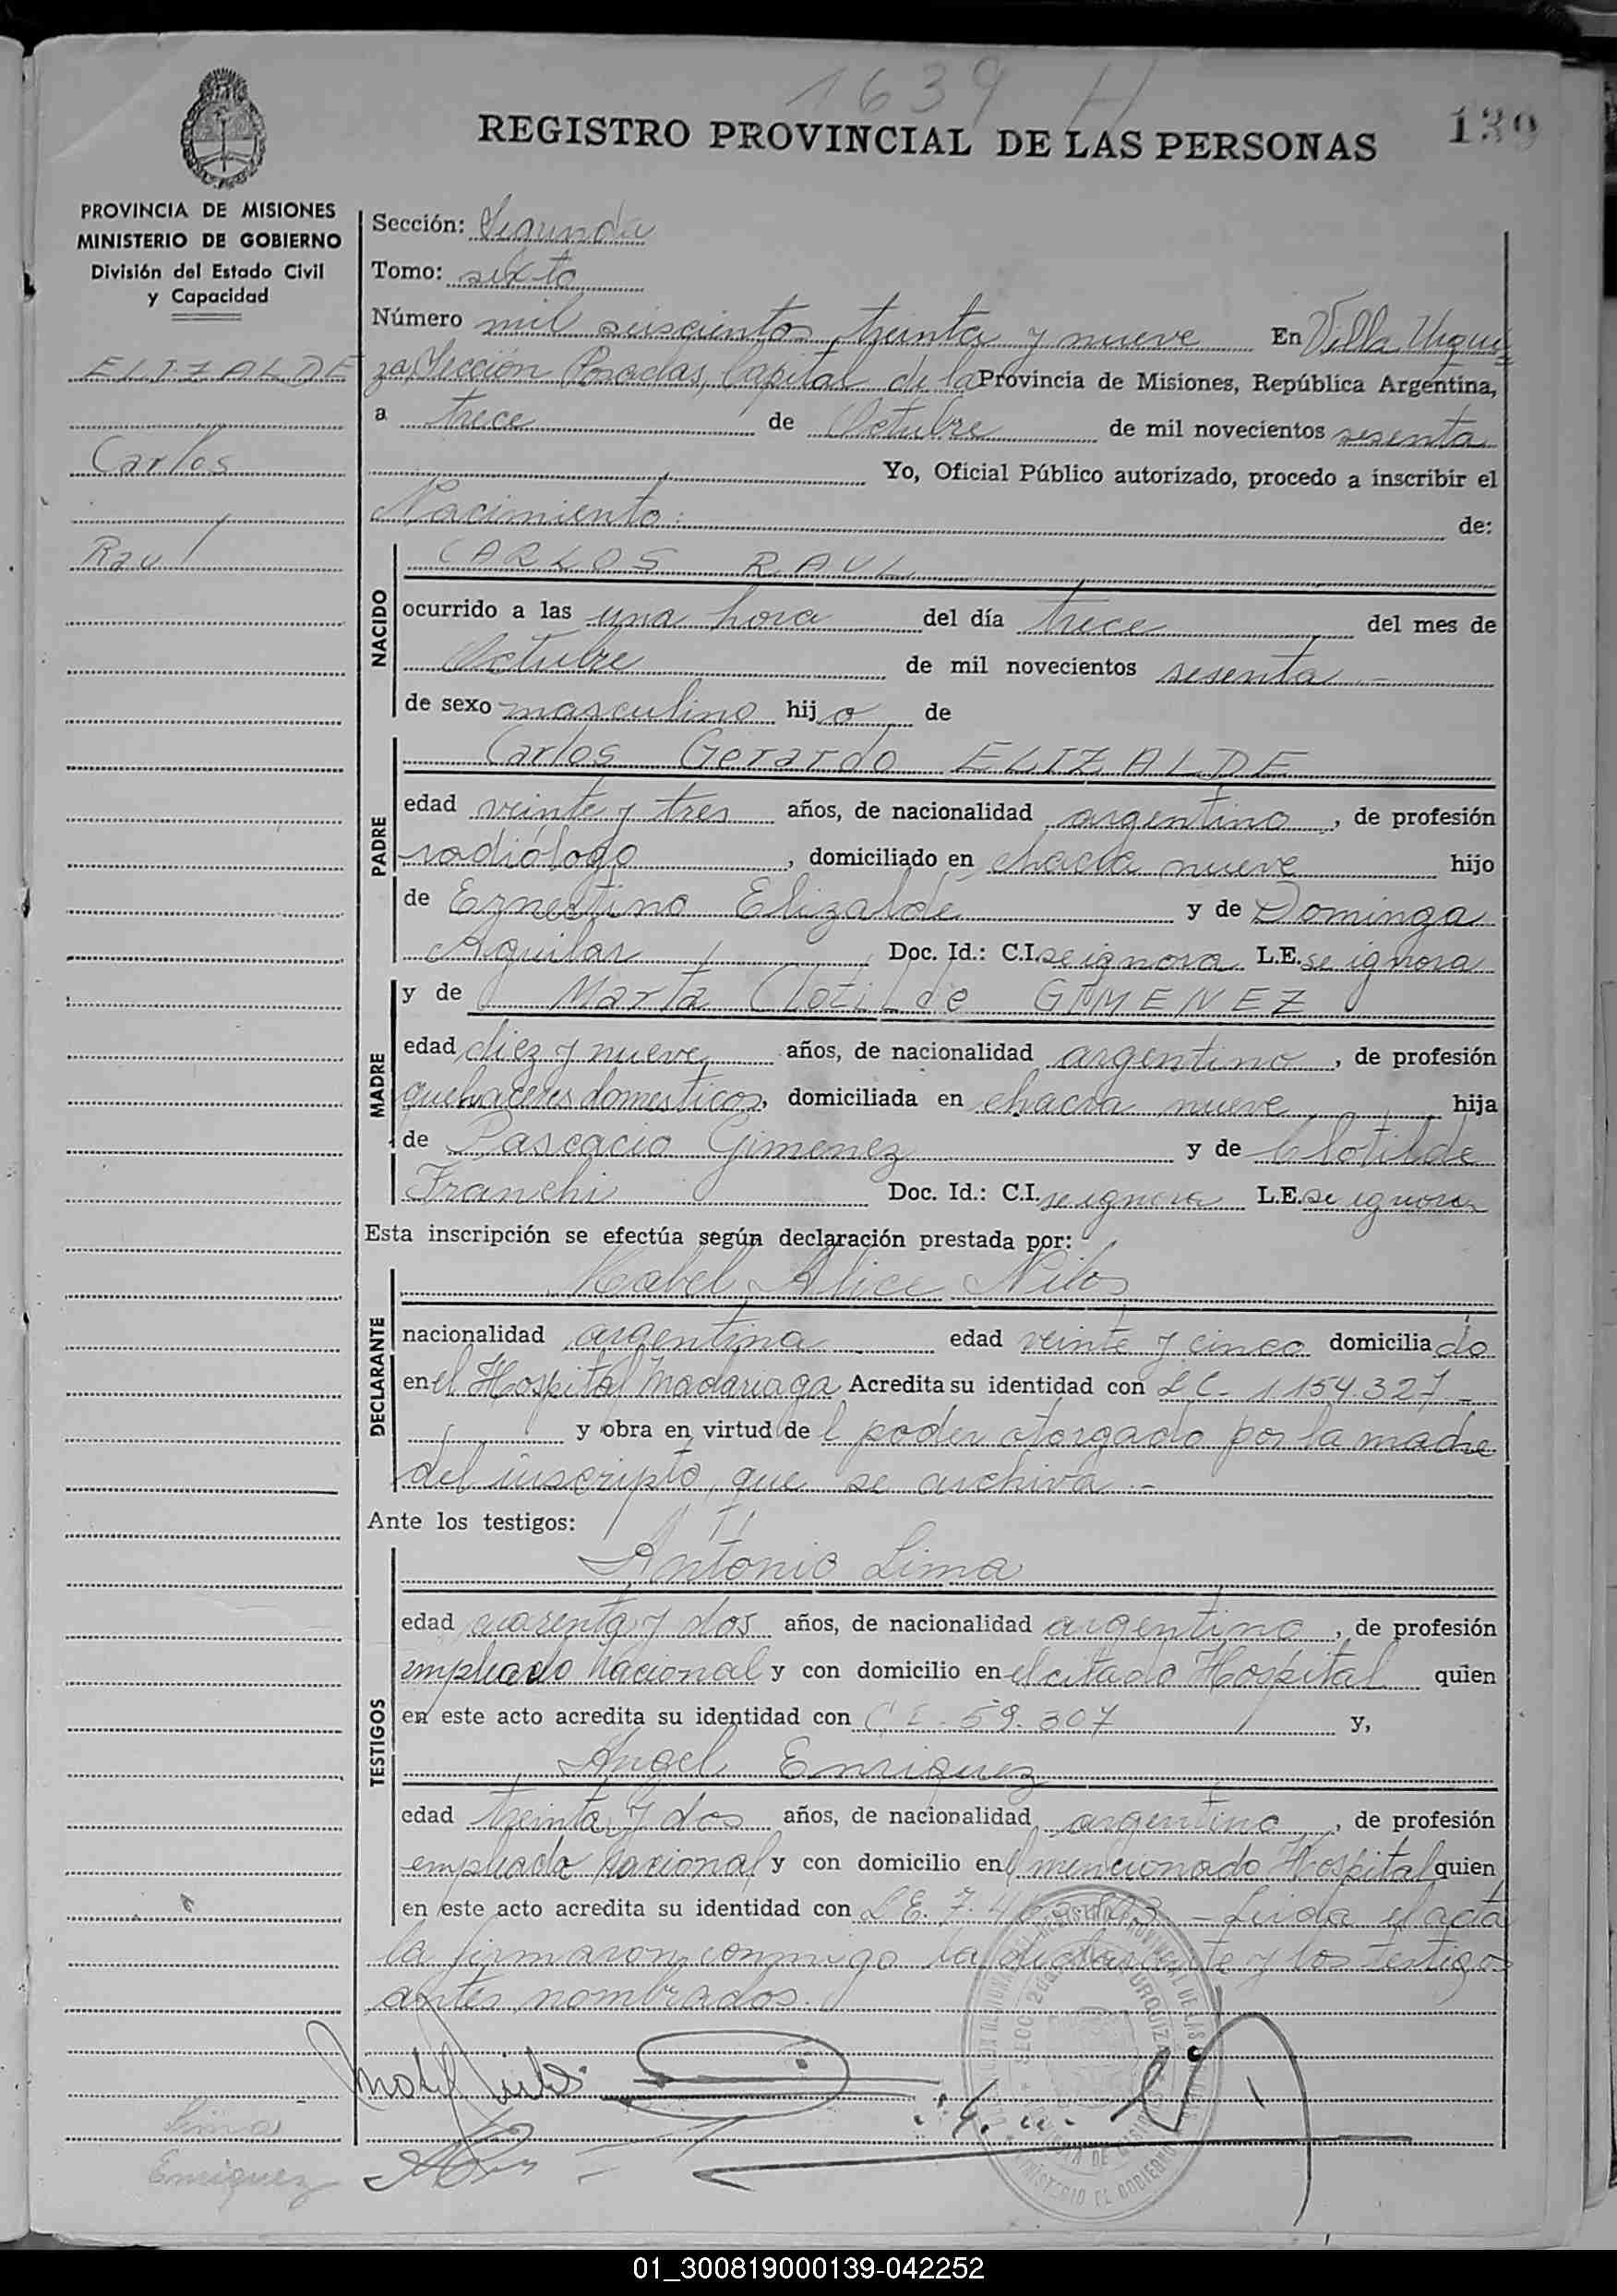 1639 H
REGISTRO PROVINCIAL DE LAS PERSONAS
139
PROVINCIA DE MISIONES
MINISTERIO DE GOBIERNO
División del Estado Civil
y Capacidad
ELIZALDE
Carlos
Raul
Sección: Segunda
Tomo: sexto
Número mil seiscientos treinta y nueve En Villa Urqui-
za, Sección Posadas, Capital de la Provincia de Misiones, República Argentina,
a trece de Octubre de mil novecientos sesenta
Yo, Oficial Público autorizado, procedo a inscribir el
Nacimiento: de:
NACIDO
CARLOS RAUL
ocurrido a las una hora del día trece del mes de
Octubre de mil novecientos sesenta.-
de sexo masculino hijo de
PADRE
Carlos Gerardo ELIZALDE
edad veinte y tres años, de nacionalidad argentino, de profesión
radiólogo, domiciliado en chacra nueve hijo
de Ernestino Elizalde y de Dominga
Aguilar Doc. Id.: C.I. se ignora L.E. se ignora
MADRE
y de Marta Clotilde GIMENEZ
edad diez y nueve años, de nacionalidad argentino, de profesión
quehaceres domesticos, domiciliada en chacra nueve hija
de Pascacio Gimenez y de Clotilde
Franchi Doc. Id.: C.I. se ignora L.E. se ignora
Esta inscripción se efectúa según declaración prestada por:
DECLARANTE
Mabel Alice Nilos
nacionalidad argentina edad veinte y cinco domiciliado
en el Hospital Madariaga Acredita su identidad con L.C. 1.154.327-
y obra en virtud del poder otorgado por la madre
del inscripto, que se archiva.-
Ante los testigos:
TESTIGOS
Antonio Lima
edad cuarenta y dos años, de nacionalidad argentino, de profesión
empleado nacional y con domicilio en el citado Hospital quien
en este acto acredita su identidad con C.I. 59.307 y,
Angel Enriquez
edad treinta y dos años, de nacionalidad argentino, de profesión
empleado nacional y con domicilio en el mencionado Hospital quien
en este acto acredita su identidad con L.E. 7. - Leida el acta
la firmaron conmigo la declarante y los testigos
antes nombrados.
Lima
Enriquez
01_300819000139-042252